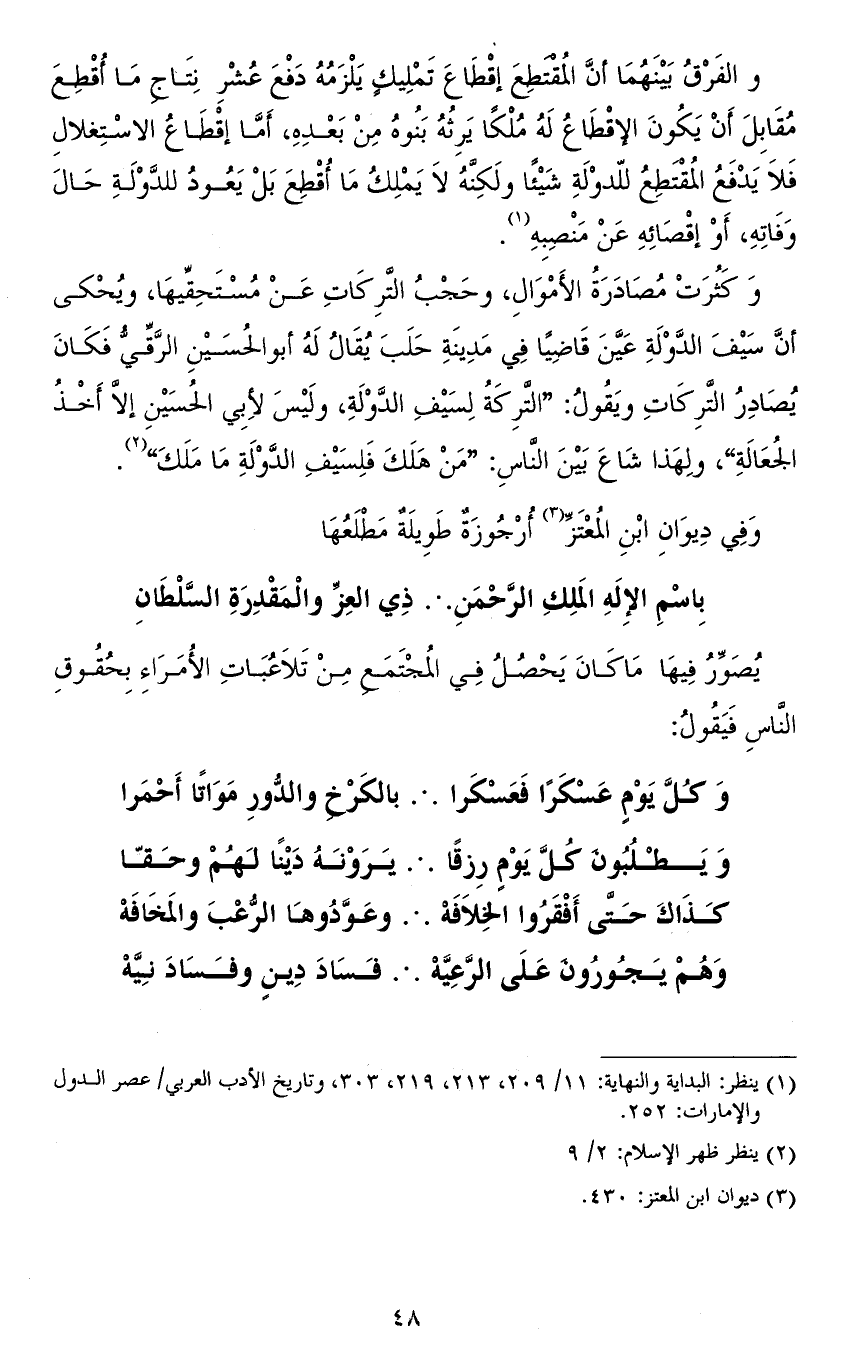 و الفَرْقُ بَيْنَهُمَا أنَّ المُقْتَطِعَ إقْطَاعَ تَمْليكٍ يَلْزَمُهُ دَفْعَ عُشْرِ نِتَاجِ مَا أُقْطِعَ
مُقَابِلَ أَنْ يَكُونَ الإقْطَاعُ لَهُ مُلْكًا يَرِثُهُ بَنُوهُ مِنْ بَعْدِهِ، أَمَّا إقْطَاعُ الاسْتِغلالِ
فَلاَ يَدْفَعُ المُقْتَطِعُ للّدولَةِ شَيْئًا ولَكِنَّهُ لاَ يَمْلِكُ مَا أُقْطِعَ بَلْ يَعُودُ للدَّوْلَةِ حَالَ
وَفَاتِهِ، أَوْ إقْصَائِهِ عَنْ مَنْصِبِهِ(١).
وَ كَثُرَتْ مُصَادَرَةُ الأَمْوَالِ، وحَجْبُ التَّرِكَاتِ عَنْ مُسْتَحِقِّيهَا، ويُحْكى
أنَّ سَيْفَ الدَّوْلَةِ عَيَّنَ قَاضِيًا فِي مَدِينَةِ حَلَبَ يُقَالُ لَهُ أبوالحُسَيْنِ الرَّقِّيُّ فَكَانَ
يُصَادِرُ التَّرِكَاتِ ويَقُولُ: ”التَّرِكَةُ لِسَيْفِ الدَّوْلَةِ، ولَيْسَ لأبِي الحُسَيْنِ إلاَّ أَخْذُ
الجُعَالَةِ“، ولِهَذا شَاعَ بَيْنَ النَّاسِ: ”مَنْ هَلَكَ فَلِسَيْفِ الدَّوْلَةِ مَا مَلَكَ“(٢).
وَفِي دِيوَانِ ابْنِ المُعْتَزِّ(٣) أُرْجُوزَةٌ طَوِيلَةٌ مَطْلَعُهَا
بِاسْمِ الإلَهِ المَلِكِ الرَّحْمَنِ.∙. ذِي العِزِّ والْمَقْدِرَةِ السَّلْطَانِ
يُصَوِّرُ فِيهَا مَاكَانَ يَحْصُلُ فِي المُجْتَمَعِ مِنْ تَلاَعُبَاتِ الأُمَرَاءِ بِحُقُوقِ
النَّاسِ فَيَقُولُ:
وَ كُلَّ يَوْمٍ عَسْكَرًا فَعَسْكَرا .∙. بالكَرْخِ والدُّورِ مَوَاتًا أَحْمَرا
وَ يَطْلُبُونَ كُلَّ يَوْمٍ رِزقًا .∙. يَرَوْنَهُ دَيْنًا لَهُمْ وحَقّا
كَذَاكَ حَتَّى أَفْقَرُوا الخِلاَفَهْ .∙. وعَوَّدُوهَا الرُّعْبَ والمَخَافَهْ
وَهُمْ يَجُورُونَ عَلَى الرَّعِيَّهْ .∙. فَسَادَ دِينٍ وفَسَادَ نِيَّهْ
(١) ينظر: البداية والنهاية: ١١/ ٢٠٩، ٢١٣، ٢١٩، ٣٠٣، وتاريخ الأدب العربي/ عصر الدول
والإمارات: ٢٥٢.
(٢) ينظر ظهر الإسلام: ٢/ ٩
(٣) ديوان ابن المعتز: ٤٣٠.
٤٨